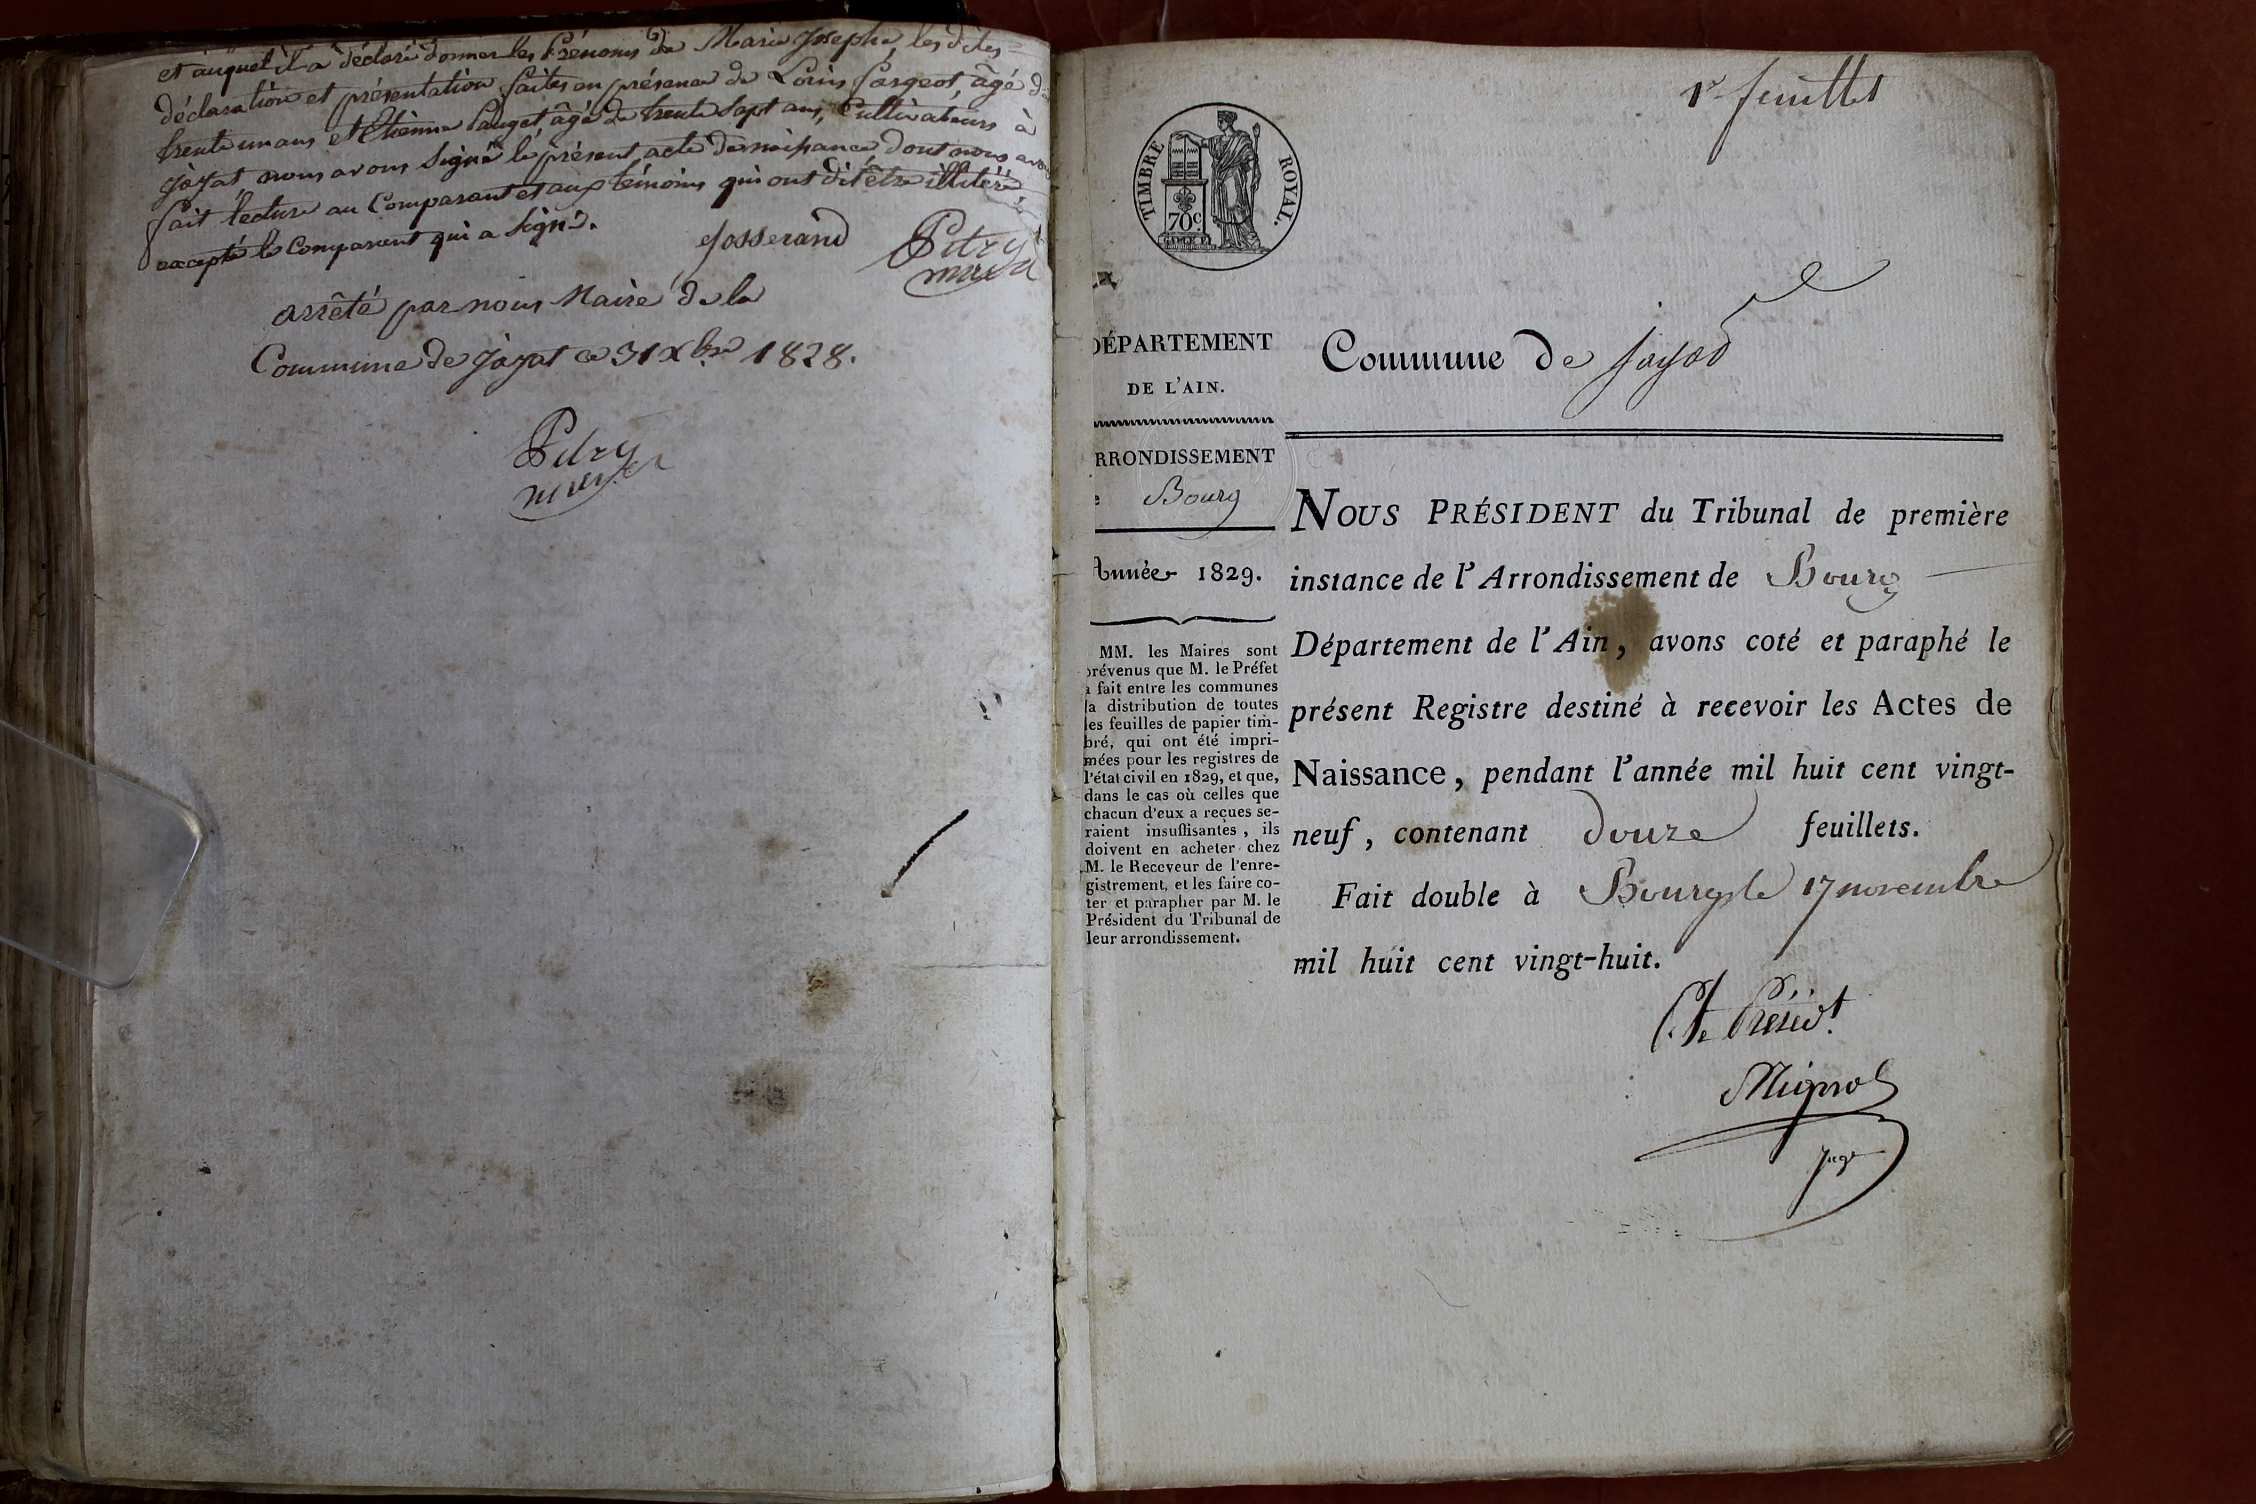 et auquel il a déclaré donner les Prénoms de Marie Josephe, les dites
déclaration et présentation faites en présence de Louis Pargeot, âgé de
trente un ans et Etienne Pauget âgé de trente sept ans, Cultivateurs à
Jayat nous avons Signé le présent acte de naissance dont nous avons
fait lecture au Comparant et aux témoins qui ont dit être illitérés
excepté le Comparant qui a Signé.
Josserand
maire
arrêté par nous Maire de la
Commune de Jayat ce 31 Xbre 1828.
maire
1er feuillet
TIMBRE ROYAL.
70c.
DÉPARTEMENT
DE L'AIN.
RRONDISSEMENT
e Bourg
Année 1829.
MM. les Maires sont
prévenus que M. le Préfet
a fait entre les communes
la distribution de toutes
les feuilles de papier tim-
bré, qui ont été impri-
mées pour les registres de
l'état civil en 1829, et que,
dans le cas où celles que
chacun d'eux a reçues se-
raient insuffisantes, ils
doivent en acheter chez
M. le Receveur de l'enre-
gistrement, et les faire co-
ter et parapher par M. le
Président du Tribunal de
leur arrondissement.
Commune de Jayat
NOUS PRÉSIDENT du Tribunal de première
instance de l'Arrondissement de Bourg
Département de l'Ain, avons coté et paraphé le
présent Registre destiné à recevoir les Actes de
Naissance, pendant l'année mil huit cent vingt-
neuf, contenant douze feuillets.
Fait double à Bourg le 17 novembre
mil huit cent vingt-huit.
Le Présidt.
Juge